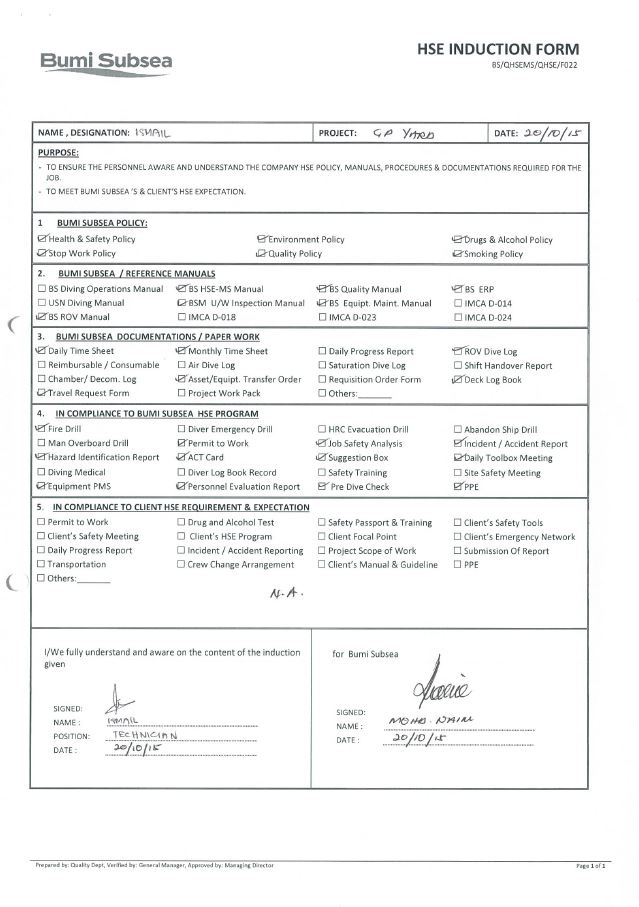 Bumi Subsea
HSE INDUCTION FORM
BS/QHSEMS/QHSE/F022
NAME, DESIGNATION: ISMAIL PROJECT: GP YARD DATE: 20/10/15
PURPOSE:
- TO ENSURE THE PERSONNEL AWARE AND UNDERSTAND THE COMPANY HSE POLICY, MANUALS, PROCEDURES & DOCUMENTATIONS REQUIRED FOR THE
JOB.
- TO MEET BUMI SUBSEA 'S & CLIENT'S HSE EXPECTATION.
1 BUMI SUBSEA POLICY:
☑ Health & Safety Policy ☑ Environment Policy ☑ Drugs & Alcohol Policy
☑ Stop Work Policy ☑ Quality Policy ☑ Smoking Policy
2. BUMI SUBSEA / REFERENCE MANUALS
☐ BS Diving Operations Manual ☑ BS HSE-MS Manual ☑ BS Quality Manual ☑ BS ERP
☐ USN Diving Manual ☑ BSM U/W Inspection Manual ☑ BS Equipt. Maint. Manual ☐ IMCA D-014
☑ BS ROV Manual ☐ IMCA D-018 ☐ IMCA D-023 ☐ IMCA D-024
3. BUMI SUBSEA DOCUMENTATIONS / PAPER WORK
☑ Daily Time Sheet ☑ Monthly Time Sheet ☐ Daily Progress Report ☑ ROV Dive Log
☐ Reimbursable / Consumable ☐ Air Dive Log ☐ Saturation Dive Log ☐ Shift Handover Report
☐ Chamber/ Decom. Log ☑ Asset/Equipt. Transfer Order ☐ Requisition Order Form ☑ Deck Log Book
☑ Travel Request Form ☐ Project Work Pack ☐ Others:______
4. IN COMPLIANCE TO BUMI SUBSEA HSE PROGRAM
☑ Fire Drill ☐ Diver Emergency Drill ☐ HRC Evacuation Drill ☐ Abandon Ship Drill
☐ Man Overboard Drill ☑ Permit to Work ☑ Job Safety Analysis ☑ Incident / Accident Report
☑ Hazard Identification Report ☑ ACT Card ☑ Suggestion Box ☑ Daily Toolbox Meeting
☐ Diving Medical ☐ Diver Log Book Record ☐ Safety Training ☐ Site Safety Meeting
☑ Equipment PMS ☑ Personnel Evaluation Report ☑ Pre Dive Check ☑ PPE
5. IN COMPLIANCE TO CLIENT HSE REQUIREMENT & EXPECTATION
☐ Permit to Work ☐ Drug and Alcohol Test ☐ Safety Passport & Training ☐ Client's Safety Tools
☐ Client's Safety Meeting ☐ Client's HSE Program ☐ Client Focal Point ☐ Client's Emergency Network
☐ Daily Progress Report ☐ Incident / Accident Reporting ☐ Project Scope of Work ☐ Submission Of Report
☐ Transportation ☐ Crew Change Arrangement ☐ Client's Manual & Guideline ☐ PPE
☐ Others:______
N.A.
I/We fully understand and aware on the content of the induction
given
SIGNED:
NAME : ISMAIL
POSITION: TECHNICIAN
DATE : 20/10/15
for Bumi Subsea
SIGNED:
NAME : MOHD. NAIM
DATE : 20/10/15
Prepared by: Quality Dept, Verified by: General Manager, Approved by: Managing Director Page 1 of 1